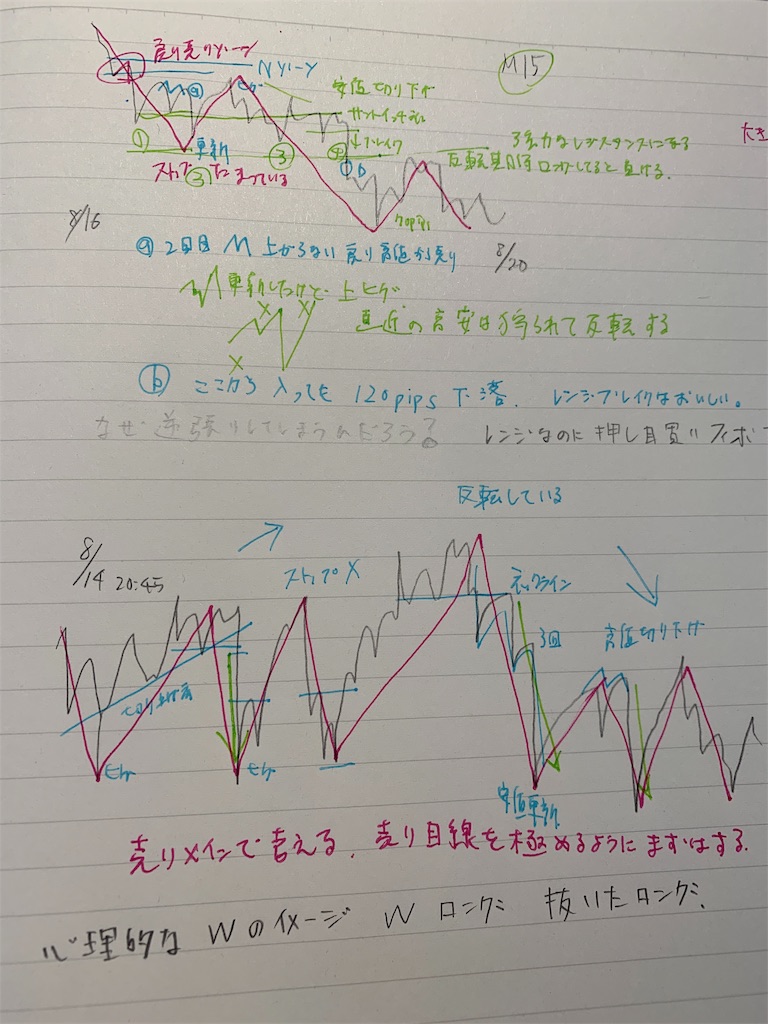 戻り売りゾーン
Nゾーン
M15
安値切り下げ
ⓐ
ヒゲ
① 更新
ストップ ② たまっている
③
④
ブレイク
b
強力なレジスタンスになる
反転見れずロングしてると負ける.
70pips
8/16
8/20
ⓐ 2回目 M 上がらない 戻り高値から売り
更新したけど 上ヒゲ
X X X
直近の高安は狩られて反転する
ⓑ ここから入っても 120pips 下落. レンジブレイクはおいしい。
なぜ逆張りしてしまうんだろう? レンジなのに 押し目買い フィボ
反転している
8/14 20:45
ストップ X
ネックライン
3回
高値切り下げ
切り上げ
ヒゲ
ヒゲ
安値更新
売りメインで考える. 売り目線を極めるようにまずはする.
心理的な Wのイメージ W ロング 抜いたロング.